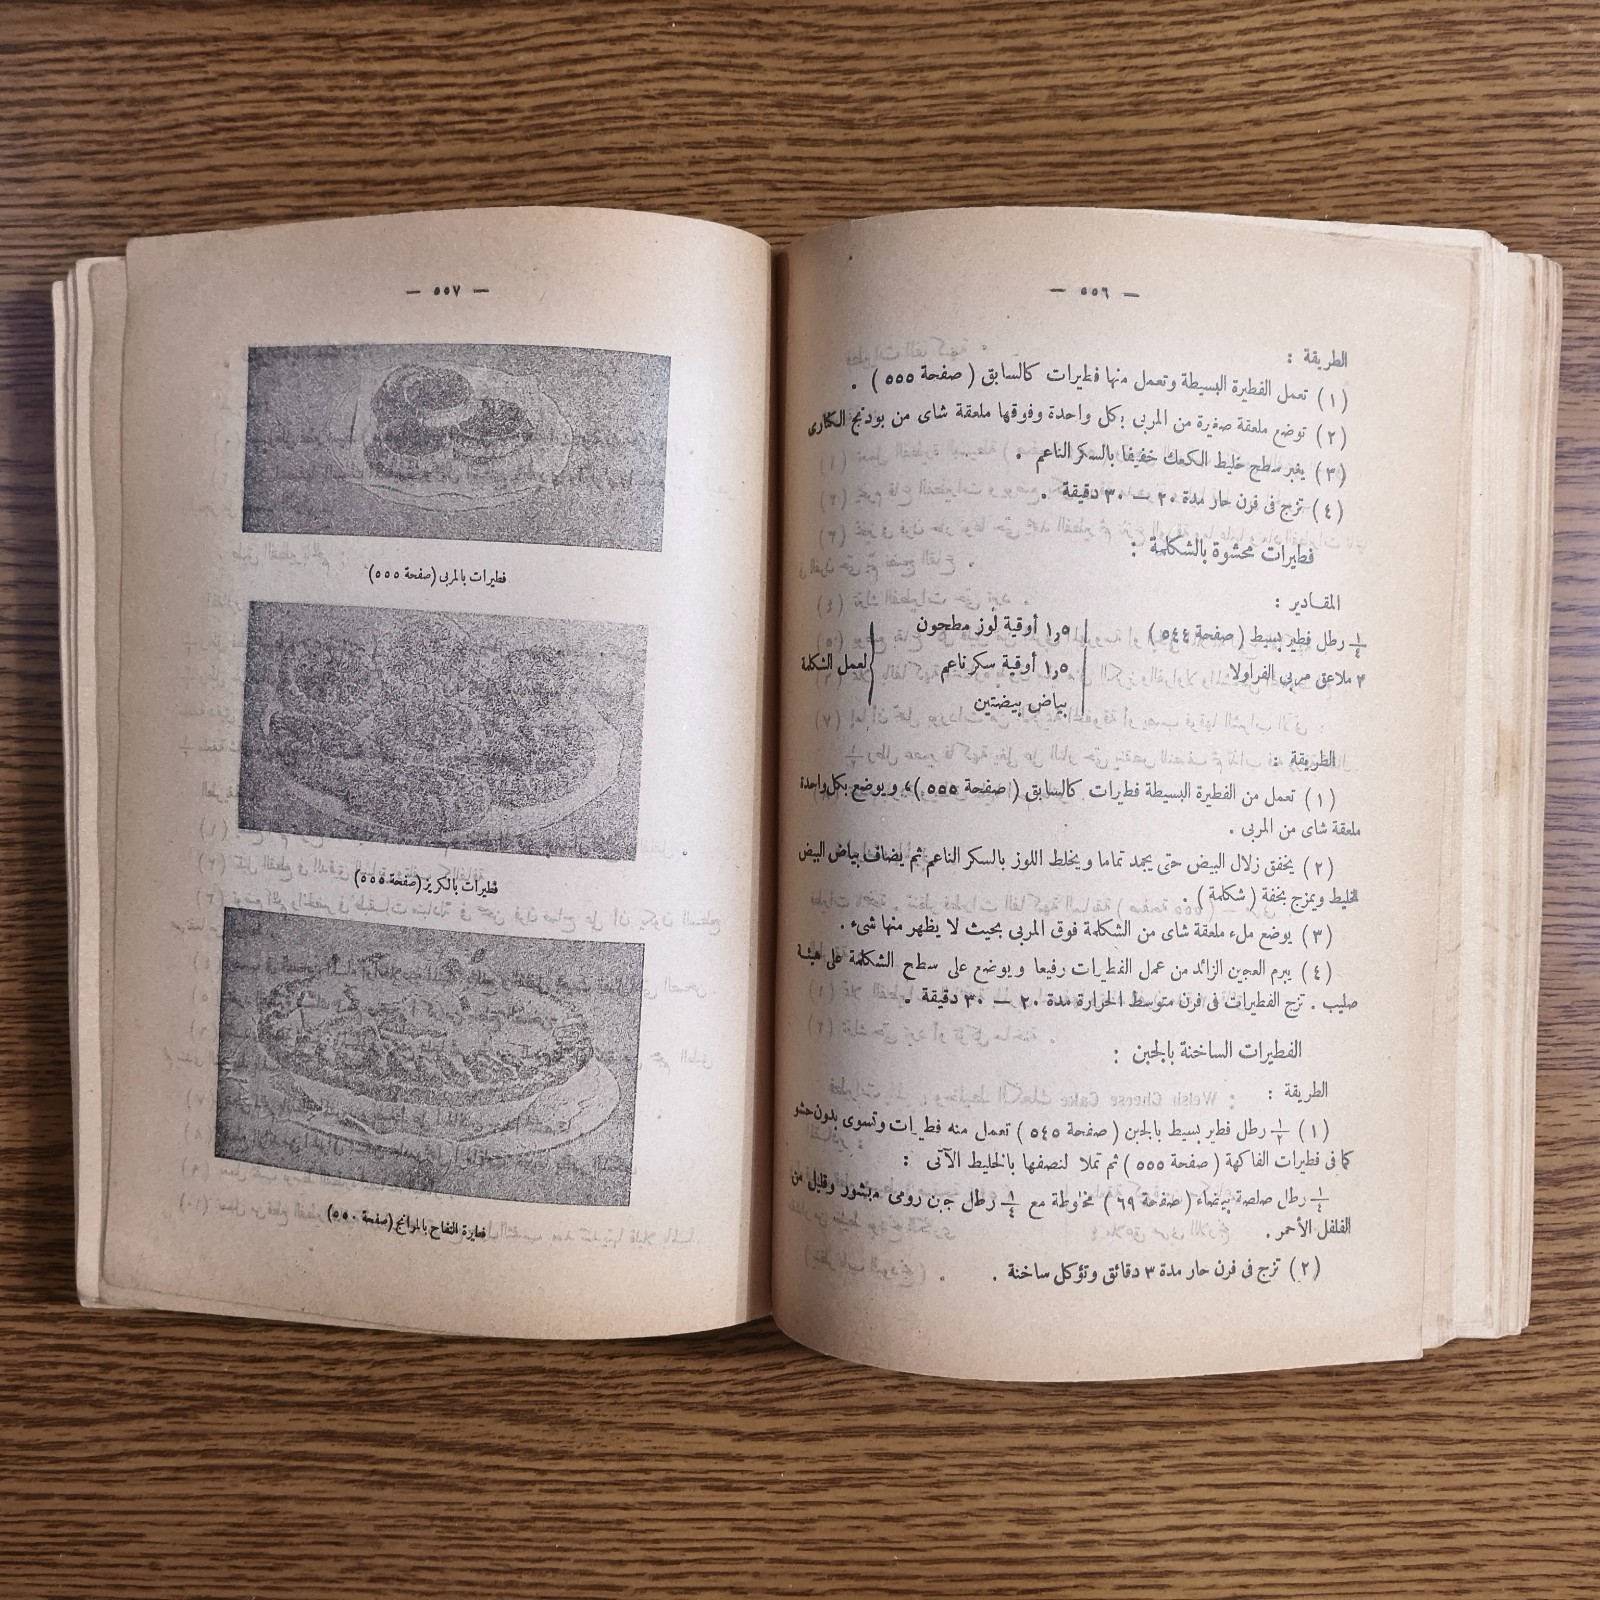 — ٥٥٦ —
الطريقة :
(١) تعمل الفطيرة البسيطة وتعمل منها فطيرات كالسابق (صفحة ٥٥٥) .
(٢) توضع ملعقة صغيرة من المربى بكل واحدة وفوقها ملعقة شاى من بودنج الكنارى
(٣) يغبر سطح خليط الكعك خفيفا بالسكر الناعم .
(٤) تزج فى فرن حار مدة ٢٠ — ٣٠ دقيقة .
فطيرات محشوة بالشكلمة :
المقادير :
١/٤ رطل فطير بسيط (صفحة ٥٤٤) ١,٥ أوقية لوز مطحون
٣ ملاعق مربى الفراولا ١,٥ أوقية سكر ناعم لعمل الشكلمة
بياض بيضتين
الطريقة :
(١) تعمل من الفطيرة البسيطة فطيرات كالسابق (صفحة ٥٥٥)، ويوضع بكل واحدة
ملعقة شاى من المربى .
(٢) يخفق زلال البيض حتى يجمد تماما ويخلط اللوز بالسكر الناعم ثم يضاف بياض البيض
للخليط ويمزج بخفة (شكلمة) .
(٣) يوضع ملء ملعقة شاى من الشكلمة فوق المربى بحيث لا يظهر منها شىء .
(٤) يبرم العجين الزائد من عمل الفطيرات رفيعا ويوضع على سطح الشكلمة على هيئة
صليب . تزج الفطيرات فى فرن متوسط الحرارة مدة ٢٠ — ٣٠ دقيقة .
الفطيرات الساخنة بالجبن :
الطريقة :
(١) ١/٢ رطل فطير بسيط بالجبن (صفحة ٥٤٥) تعمل منه فطيرات وتسوى بدون حشو
كما فى فطيرات الفاكهة (صفحة ٥٥٥) ثم تملا لنصفها بالخليط الآتى :
١/٤ رطل صلصة بيضاء (صفحة ٦٩) مخلوطة مع ١/٤ رطل جبن رومى مبشور وقليل من
الفلفل الأحمر .
(٢) تزج فى فرن حار مدة ٣ دقائق وتؤكل ساخنة .
— ٥٥٧ —
فطيرات بالمربى (صفحة ٥٥٥)
فطيرات بالكريز (صفحة ٥٥٥)
فطيرة التفاح بالمرانج (صفحة ٥٥٠)